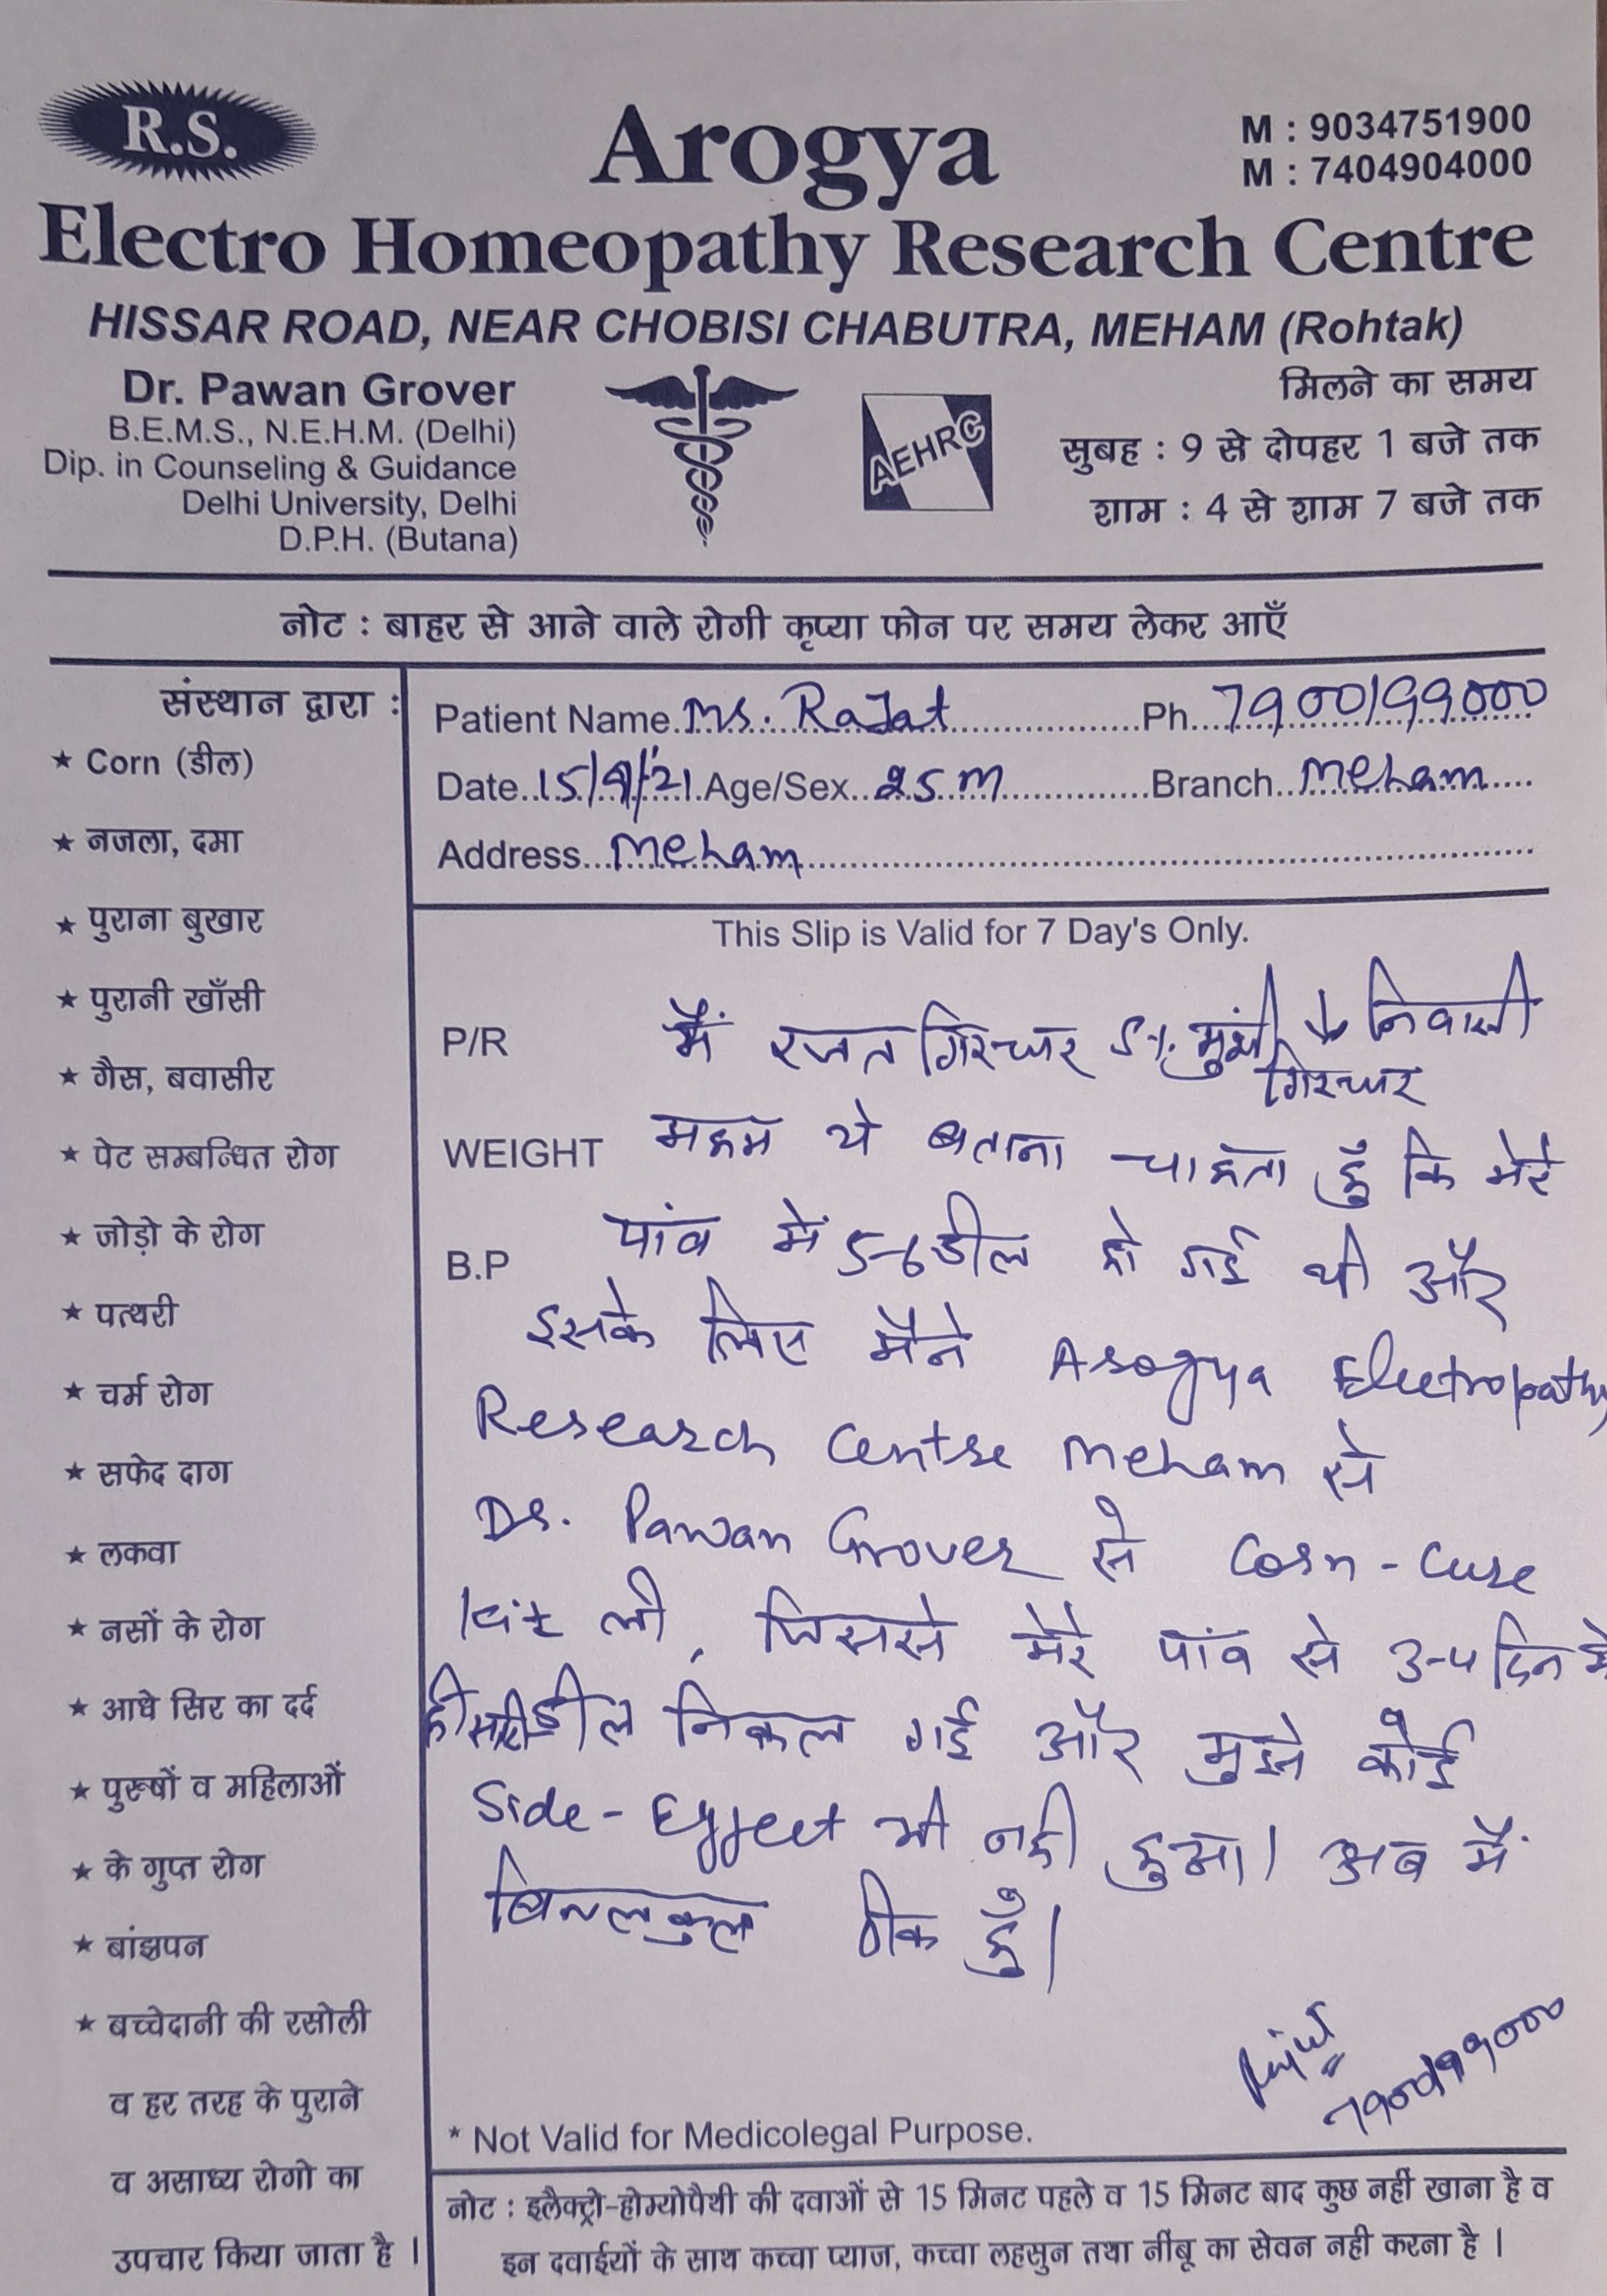 R.S.
Arogya
M : 9034751900
M : 7404904000
Electro Homeopathy Research Centre
HISSAR ROAD, NEAR CHOBISI CHABUTRA, MEHAM (Rohtak)
Dr. Pawan Grover
B.E.M.S., N.E.H.M. (Delhi)
Dip. in Counseling & Guidance
Delhi University, Delhi
D.P.H. (Butana)
AEHRC
मिलने का समय
सुबह : 9 से दोपहर 1 बजे तक
शाम : 4 से शाम 7 बजे तक
नोट : बाहर से आने वाले रोगी कृप्या फोन पर समय लेकर आएँ
संस्थान द्वारा :
★ Corn (डील)
★ नजला, दमा
★ पुराना बुखार
★ पुरानी खाँसी
★ गैस, बवासीर
★ पेट सम्बन्धित रोग
★ जोड़ो के रोग
★ पत्थरी
★ चर्म रोग
★ सफेद दाग
★ लकवा
★ नसों के रोग
★ आधे सिर का दर्द
★ पुरूषों व महिलाओं
★ के गुप्त रोग
★ बांझपन
★ बच्चेदानी की रसोली
व हर तरह के पुराने
व असाध्य रोगो का
उपचार किया जाता है ।
Patient Name Mr. Rajat Ph. 7900199000
Date 15/9/21 Age/Sex 25 M Branch Meham
Address Meham
This Slip is Valid for 7 Day's Only.
P/R
मैं रजत गिरधर S/o निवासी
गिरधर
WEIGHT
महम ये बताना चाहता हूँ कि मेरे
B.P
पांव में 5-6 डील हो गई थी और
इसके लिए मैंने Arogya Electropathy
Research Centre Meham से
Dr. Pawan Grover से Corn-Cure
Kit ली, जिससे मेरे पांव से 3-4 दिन मे
ही सारी डील निकल गई और मुझे कोई
Side-Effect भी नही हुआ। अब मैं
बिल्लकुल ठीक हूँ।
7900199000
* Not Valid for Medicolegal Purpose.
नोट : इलैक्ट्रो-होम्योपैथी की दवाओं से 15 मिनट पहले व 15 मिनट बाद कुछ नहीं खाना है व
इन दवाईयों के साथ कच्चा प्याज, कच्चा लहसुन तथा नींबू का सेवन नही करना है ।